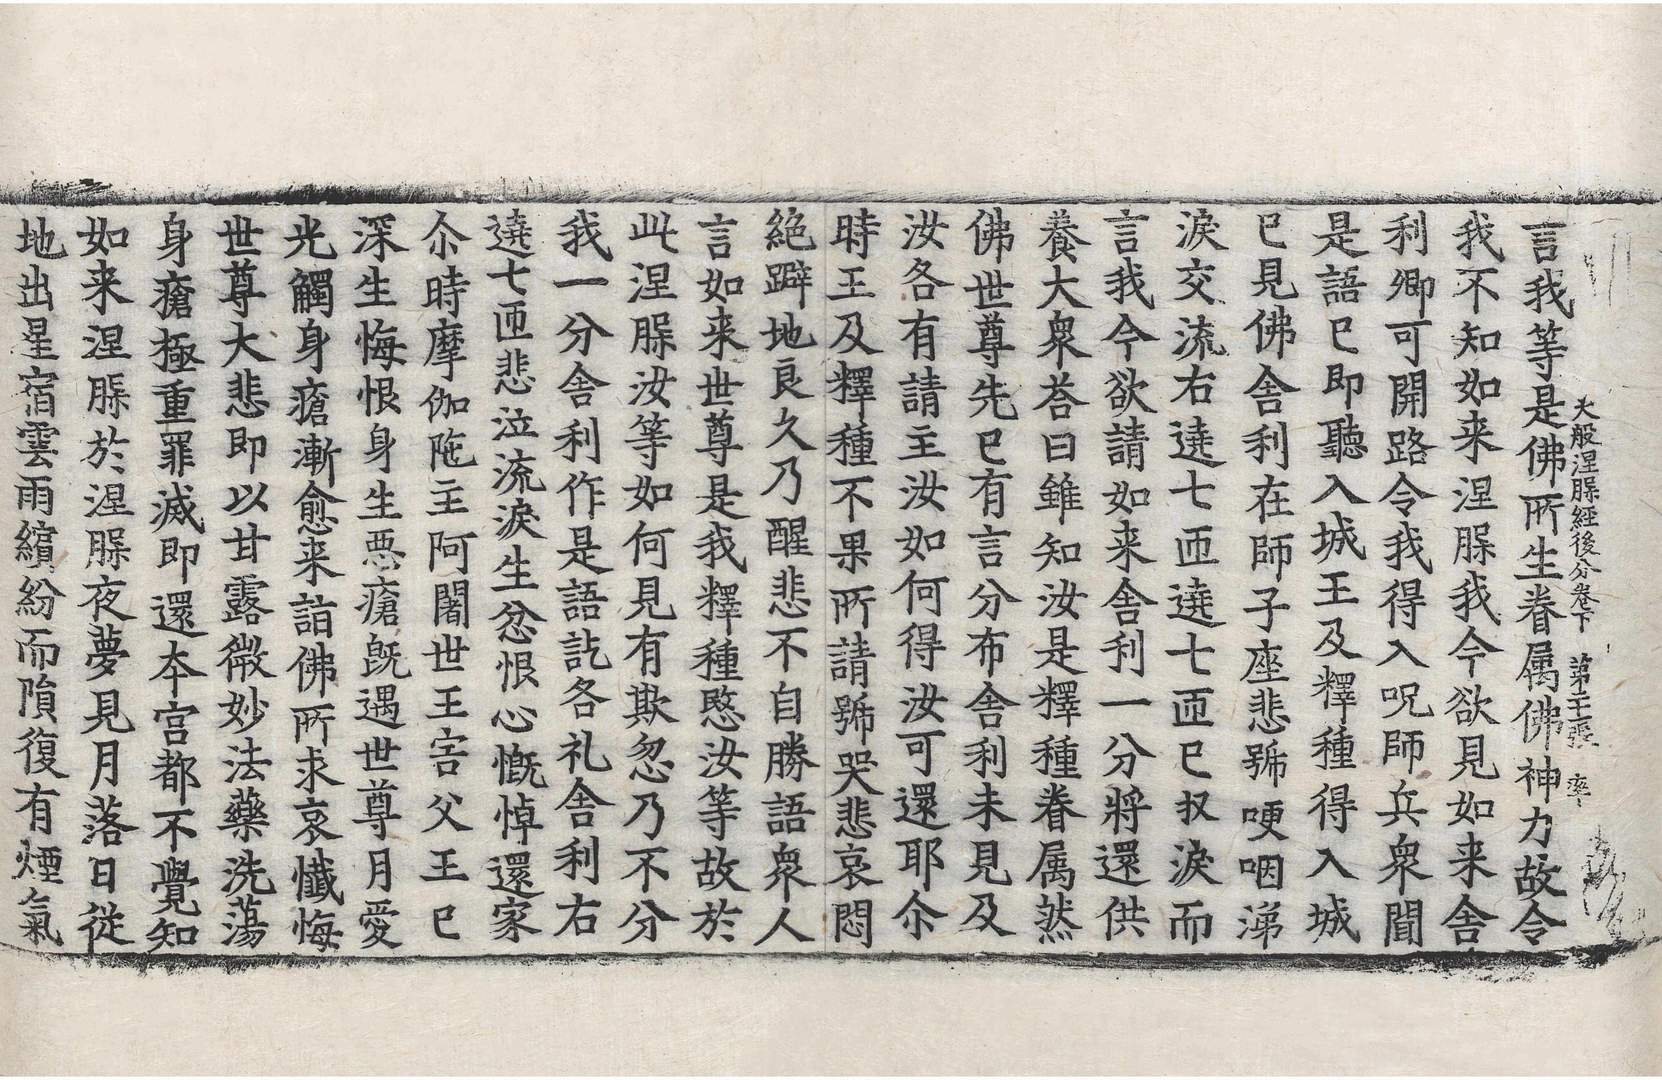 大般涅槃經後分卷下　第二十張　率
言我等是佛所生眷属佛神力故令
我不知如来涅槃我今欲見如来舎
利卿可開路令我得入呪師兵衆聞
是語已即聽入城王及釋種得入城
已見佛舎利在師子座悲號哽咽涕
淚交流右遶七匝遶七匝已収淚而
言我今欲請如来舎利一分將還供
養大衆荅曰雖知汝是釋種眷属然
佛世尊先已有言分布舎利未見及
汝各有請主汝如何得汝可還耶尒
時王及釋種不果所請號哭悲哀悶
絶躃地良久乃醒悲不自勝語衆人
言如来世尊是我釋種愍汝等故於
此涅槃汝等如何見有欺忽乃不分
我一分舎利作是語訖各礼舎利右
遶七匝悲泣流淚生忿恨心慨悼還家
尒時摩伽陁主阿闍世王害父王已
深生悔恨身生惡瘡既遇世尊月愛
光觸身瘡漸愈来詣佛所求哀懺悔
世尊大悲即以甘露微妙法藥洗蕩
身瘡極重罪滅即還本宮都不覺知
如来涅槃於涅槃夜夢見月落日從
地出星宿雲雨繽紛而隕復有煙氣